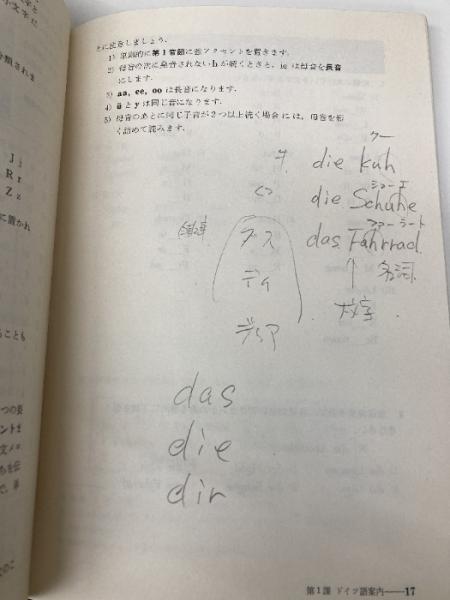 とに注意しましょう.
1) 原則的に第1音節に強アクセントを置きます.
2) 母音の次に発音されないhが続くときと, ieは母音を長音
にします.
3) aa, ee, oo は長音になります.
4) ü と y は同じ音になります.
5) 母音のあとに同じ子音が2つ以上続く場合には, 母音を短
く詰めて読みます.
クー
牛 die kuh
シューエ
クツ die Schuhe
ファーラート
自転車 das Fahrrad.
ダス
↑ 名詞
ディ
大文字
das
die
dir
J j
R r
Z z
に置かれ
ることも
つの長
第1課 ドイツ語案内——17